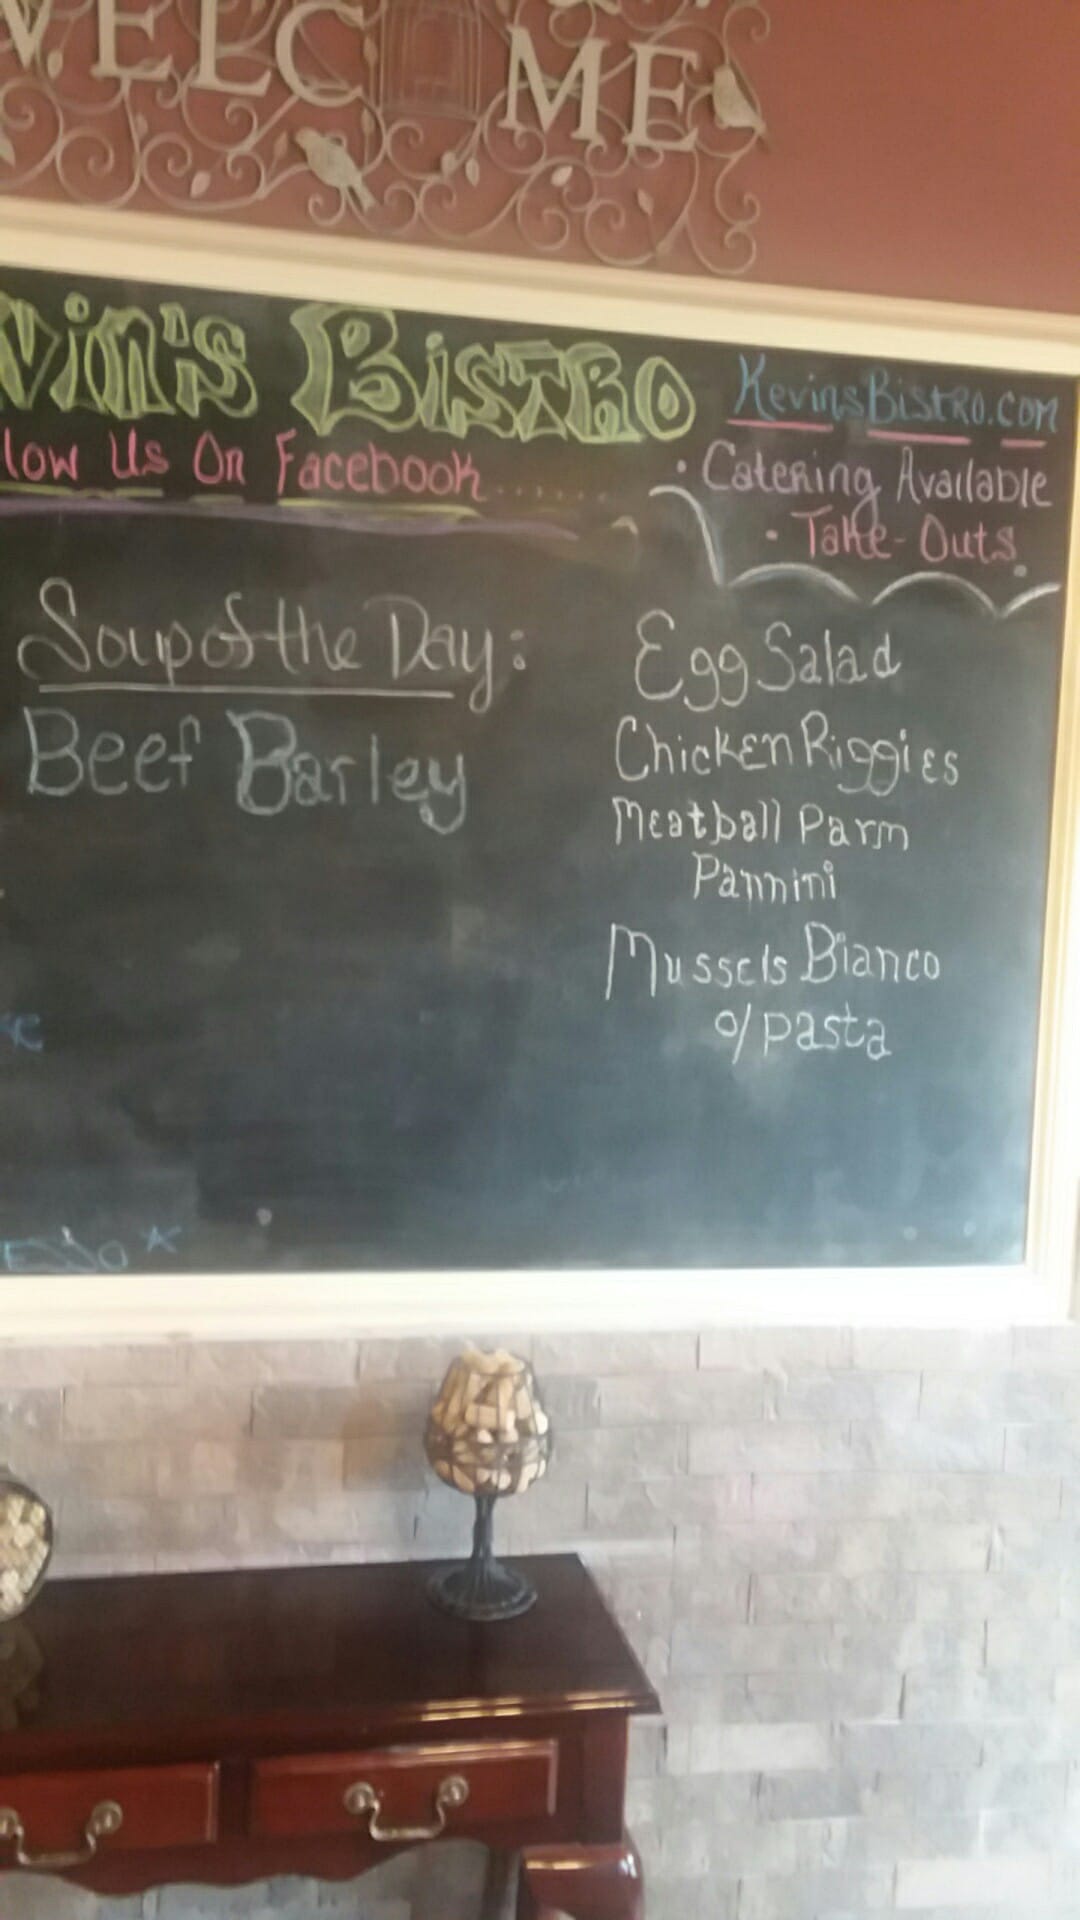 WELCOME
vin's Bistro
KevinsBistro.com
low Us On Facebook.......
· Catering Available
· Take-Outs
Soup of the Day:
Beef Barley
Egg Salad
Chicken Riggies
Meatball Parm
Pannini
Mussels Bianco
o/pasta